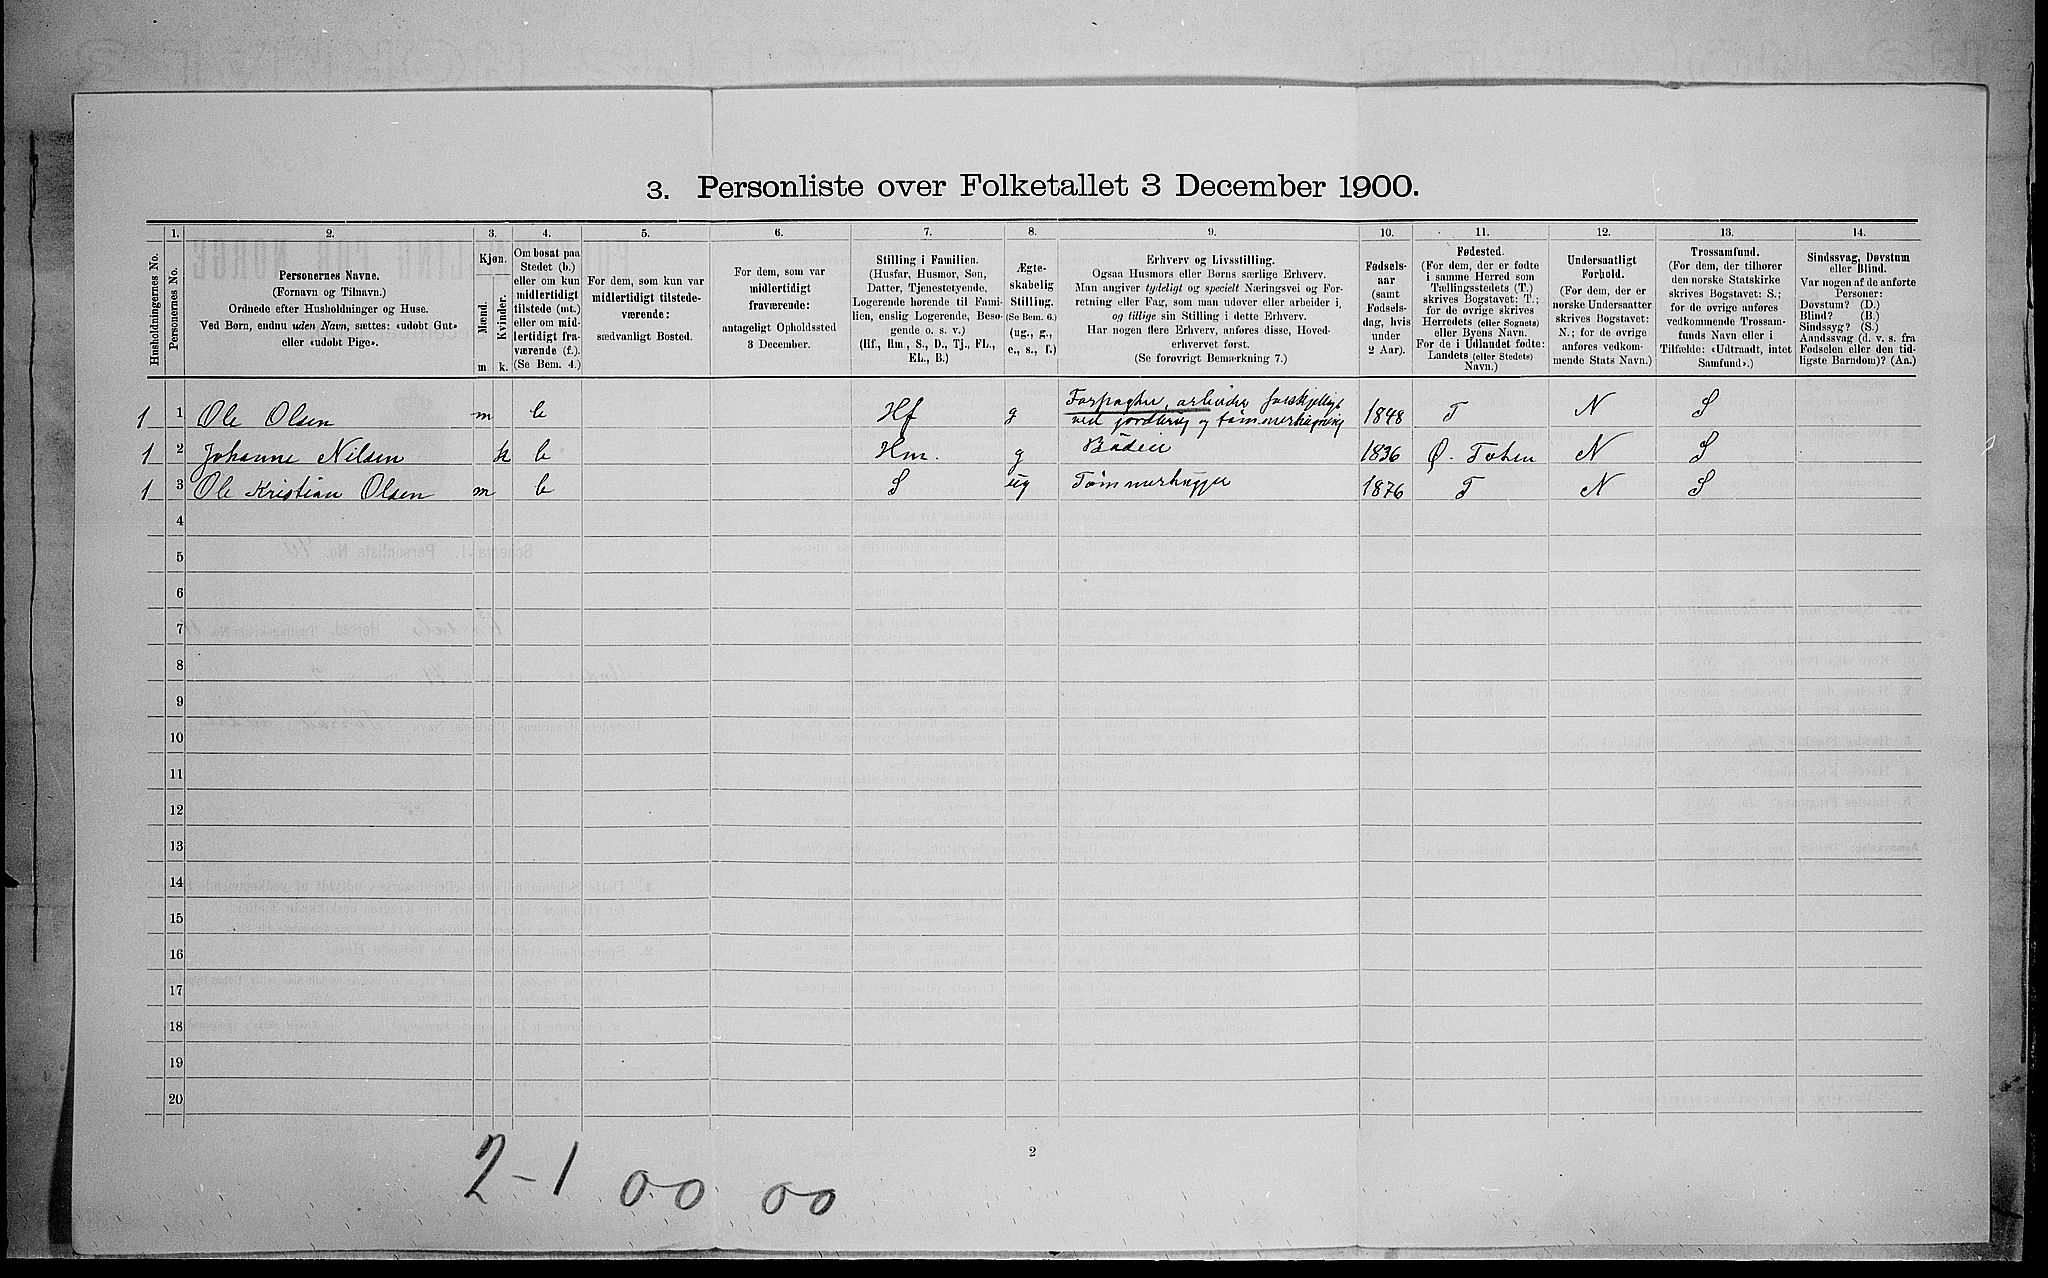 3. Personliste over Folketallet 3 December 1900.
Husholdningernes No.
1.
Personernes No.
2.
Personernes Navne.
(Fornavn og Tilnavn.)
Ordnede efter Husholdninger og Huse.
Ved Børn, endnu uden Navn, sættes: «udøbt Gut»
eller «udøbt Pige».
3.
Kjøn.
Mænd.
Kvinder.
m k.
4.
Om bosat paa
Stedet (b.)
eller om kun
midlertidigt
tilstede (mt.)
eller om mid-
lertidigt fra-
værende (f.).
(Se Bem. 4.)
5.
For dem, som kun var
midlertidigt tilstede-
værende:
sædvanligt Bosted.
6.
For dem, som var
midlertidigt
fraværende:
antageligt Opholdssted
3 December.
7.
Stilling i Familien.
(Husfar, Husmor, Søn,
Datter, Tjenestetyende,
Logerende hørende til Fami-
lien, enslig Logerende, Besø-
gende o. s. v.)
(Hf., Hm., S., D., Tj., FL.,
EL., B.)
8.
Ægte-
skabelig
Stilling.
(Se Bem. 6.)
(ug., g.,
e., s., f.)
9.
Erhverv og Livsstilling.
Ogsaa Husmors eller Børns særlige Erhverv.
Man angiver tydeligt og specielt Næringsvei og For-
retning eller Fag, som man udøver eller arbeider i,
og tillige sin Stilling i dette Erhverv.
Har nogen flere Erhverv, anføres disse, Hoved-
erhvervet først.
(Se forøvrigt Bemærkning 7.)
10.
Fødsels-
aar
(samt
Fødsels-
dag, hvis
under
2 Aar).
11.
Fødested.
(For dem, der er fødte
i samme Herred som
Tællingsstedets (T.)
skrives Bogstavet: T.;
for de øvrige skrives
Herredets (eller Sognets)
eller Byens Navn.
For de i Udlandet fødte:
Landets (eller Stedets)
Navn.)
12.
Undersaatligt
Forhold.
(For dem, der er
norske Undersaatter
skrives Bogstavet:
N.; for de øvrige
anføres vedkom-
mende Stats Navn.)
13.
Trossamfund.
(For dem, der tilhører
den norske Statskirke
skrives Bogstavet: S.;
for de øvrige anføres
vedkommende Trossam-
funds Navn eller i
Tilfælde: «Udtraadt, intet
Samfund».)
14.
Sindssvag, Døvstum
eller Blind.
Var nogen af de anførte
Personer:
Døvstum? (D.)
Blind? (B.)
Sindssyg? (S.)
Aandssvag (d. v. s. fra
Fødselen eller den tid-
ligste Barndom)? (Aa.)
1 1 Ole Olsen m b Hf g Forpagter, arbeider forskjelligt ved jordbrug og tømmerhugning 1848 T N S
1 2 Johanne Nilsen k b Hm. g Bödeie 1836 Ø. Toten N S
1 3 Ole Kristian Olsen m b S ug Tømmerhugger 1876 T N S
4
5
6
7
8
9
10
11
12
13
14
15
16
17
18
19
20
2
2-1 00 00